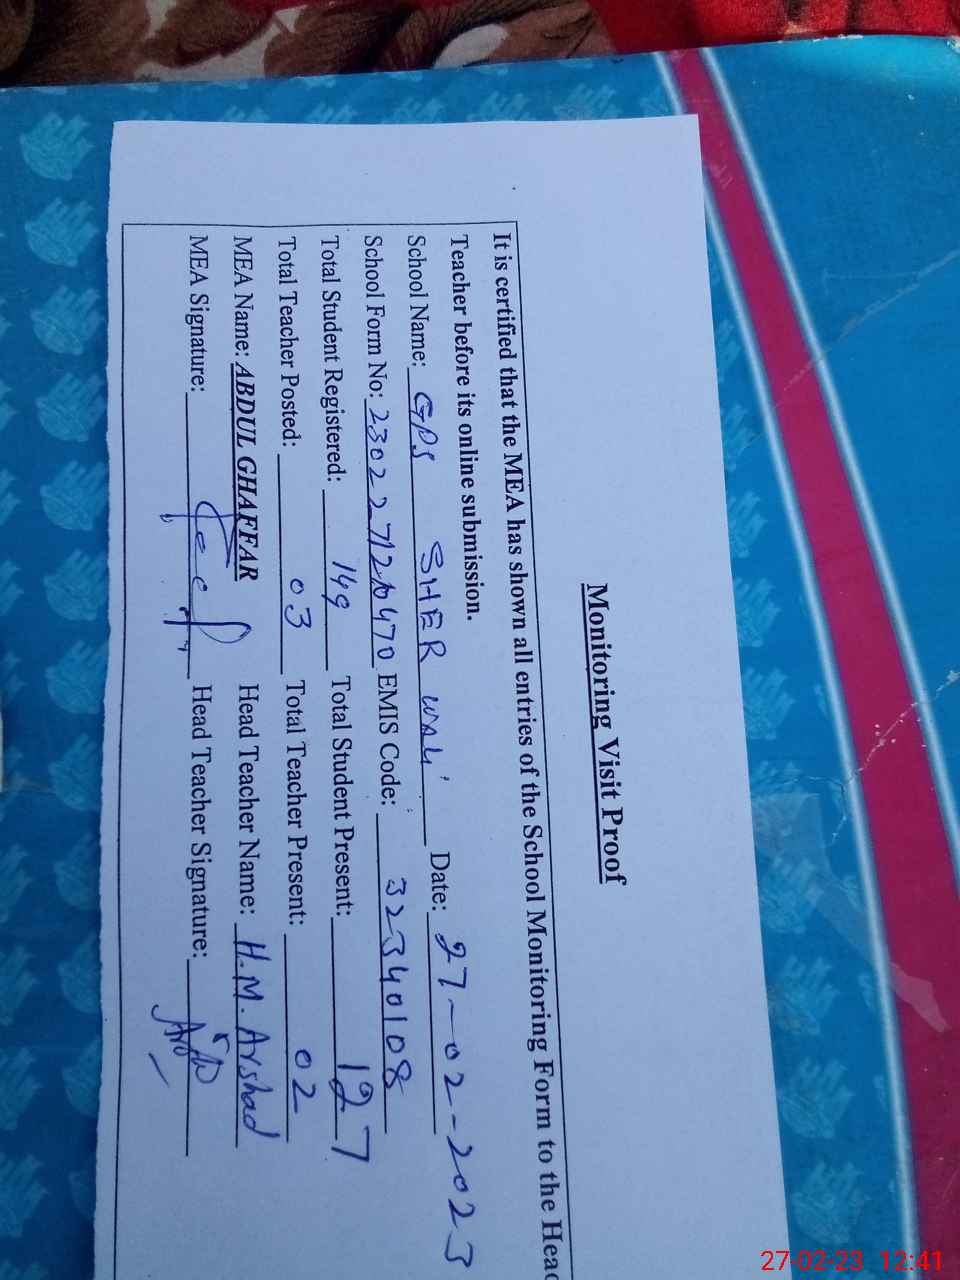 Monitoring Visit Proof
It is certified that the MEA has shown all entries of the School Monitoring Form to the Head
Teacher before its online submission.
School Name: GPS SHER WALI Date: 27-02-2023
School Form No: 230227126470 EMIS Code: 32340108
Total Student Registered: 149 Total Student Present: 127
Total Teacher Posted: 03 Total Teacher Present: 02
MEA Name: ABDUL GHAFFAR Head Teacher Name: H.M. Arshad
MEA Signature: Head Teacher Signature:
27-02-23 12:41